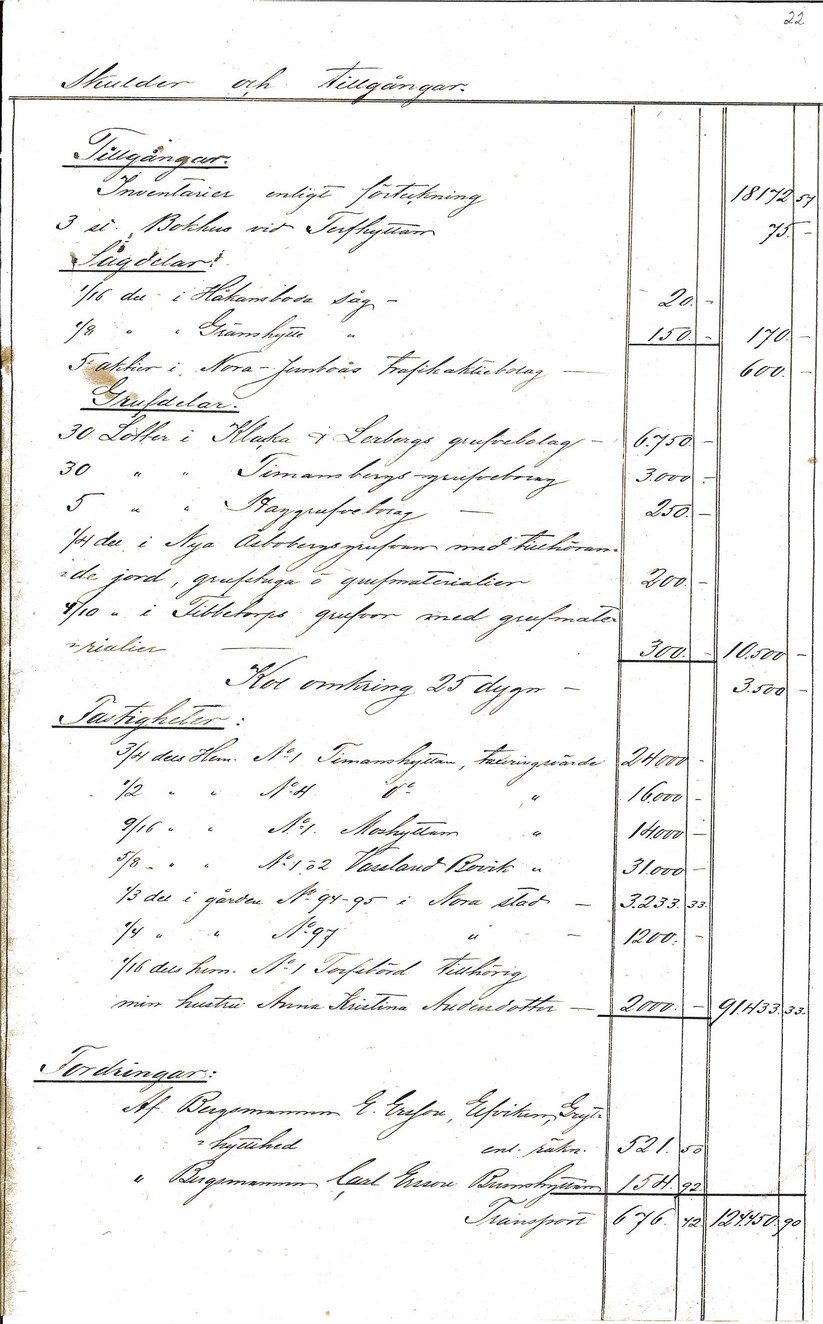 22
Skulder och tillgångar.
Tillgångar.
Inventarier enligt förteckning 18172 57
3 st. Bokhus vid Torfhyttan 75. -
Sågdelar:
1/16 del i Håkansboda såg - 20. -
1/8 " " Grämshytte " 150. - 170. -
5 aktier i Nora-Jernboås trafikaktiebolag — 600. -
Grufdelar.
30 Lotter i Klacka & Lerbergs grufvebolag - 6.750. -
30 " " Timansbergs grufvebolag 3.000 -
5 " " Haggrufvebolag — 250. -
1/4 del i Nya Åsbobergsgrufvan med tillhöran-
-de jord, grufstuga o grufmaterialier 200. -
4/10 " i Tibbetorps grufvor med grufmate-
-rialier — 300. - 10.500 -
Kol omkring 25 dygn - 3.500 -
Fastigheter:
3/4 dels Hem. No 1 Timanshyttan, taxeringsvärde 24000 -
1/2 " " No 4 do " 16.000 -
9/16 " " No 1. Moshyttan " 14.000 -
5/8 " " No 1 o 2 Vasseland Bovik " 31.000 -
1/3 del i gården No 94-95 i Nora stad - 3.233. 33.
1/4 " " No 97 " - 1200. -
1/16 dels hem. No 1 tillhörig
min hustru Anna Kristina Andersdotter — 2000. - 91.433. 33.
Fordringar:
Af Bergsmannen E. Ersson, Elfviken, Gryt-
-hyttehed enl. räkn. 521. 50
" Bergsmannen Carl Ersson Bremshyttan 154. 92
Transport 676. 42 124.450. 90